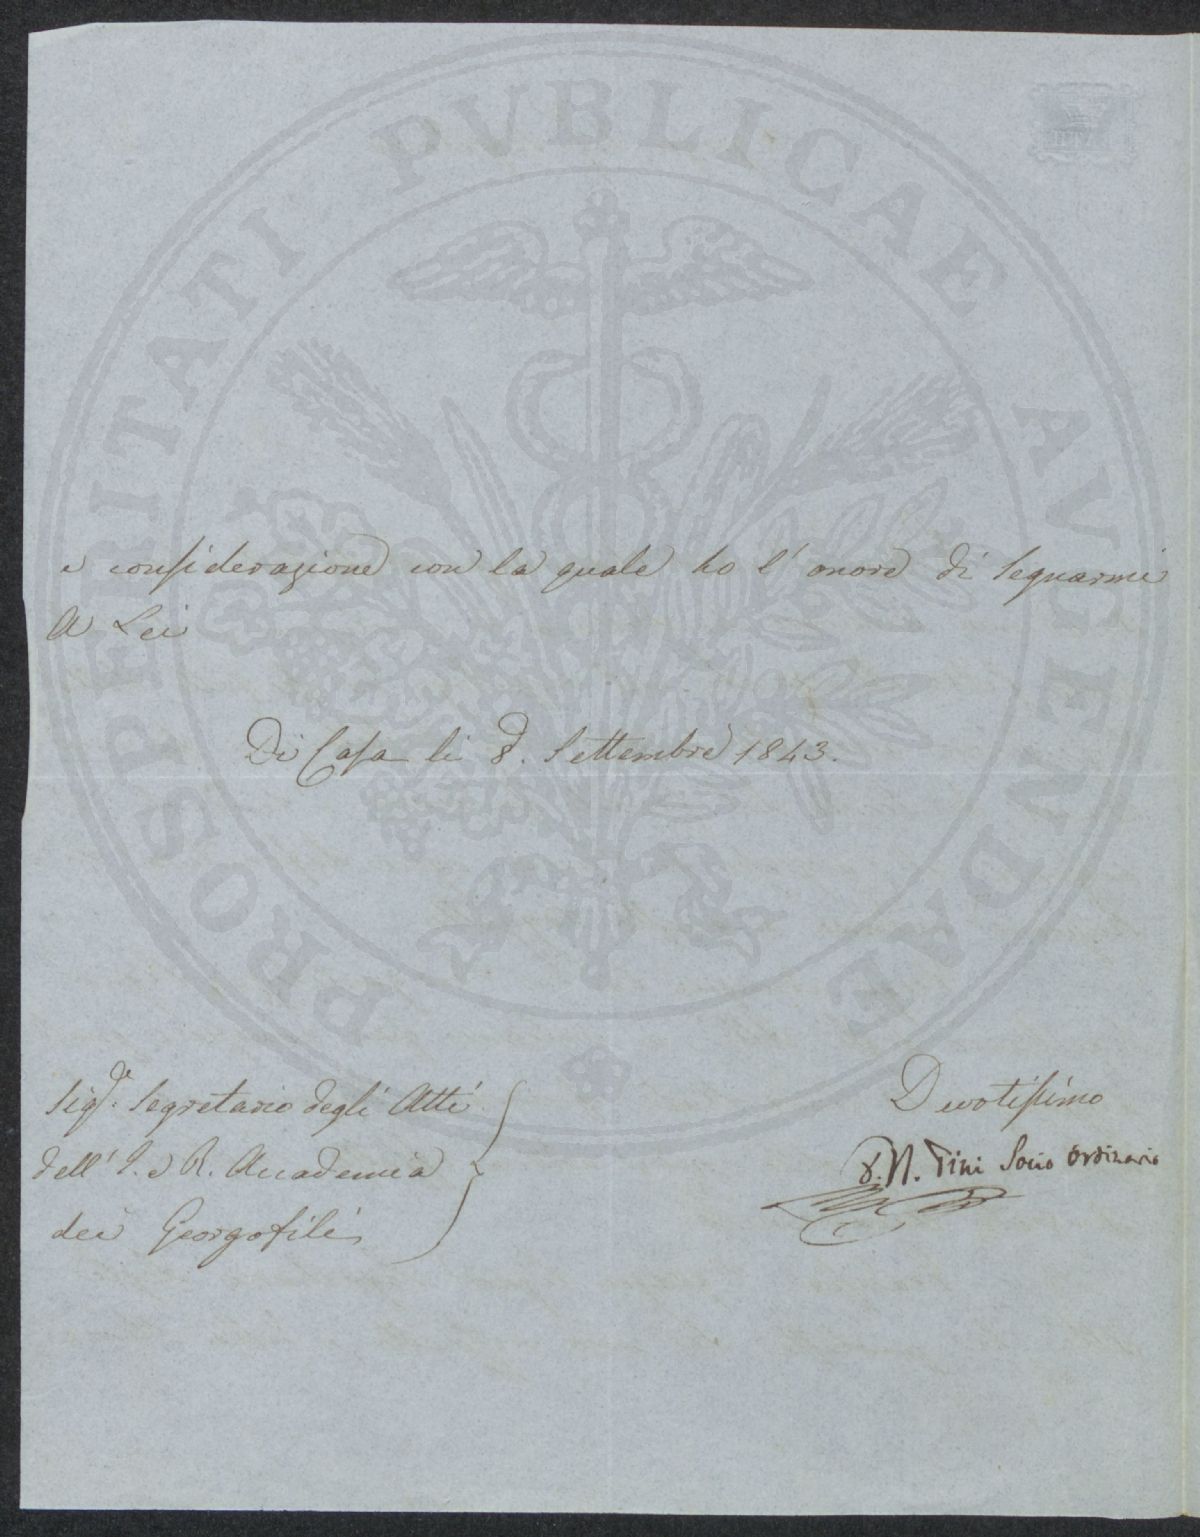 PROSPERITATI PVBLICAE AVGENDAE
e considerazione con la quale ho l' onore di segnarmi
A Lei
Di Casa li 8. Settembre 1843.
Sig.re Segretario degli Atti
dell' I. e R. Accademia
dei Georgofili
Devotissimo
D. N. Tini Socio Ordinario